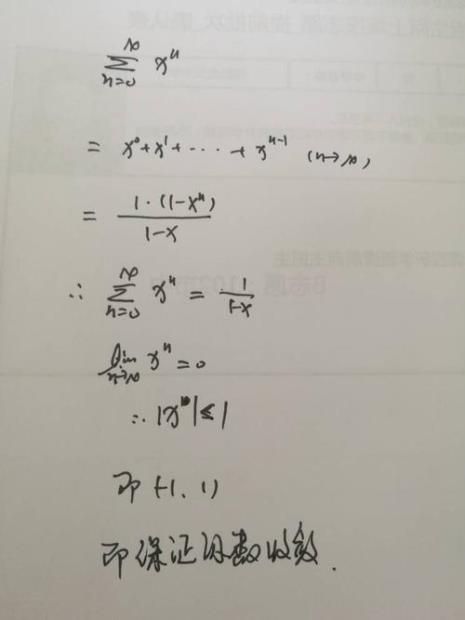 ∑_{n=0}^{∞} x^n
= x^0 + x^1 + ⋯ + x^{n-1} (n→∞)
= \frac{1·(1-x^n)}{1-x}
∴ ∑_{n=0}^{∞} x^n = \frac{1}{1-x}
lim_{n→∞} x^n = 0
∴ |x^n| ≤ 1
即 (-1, 1)
即保证级数收敛.